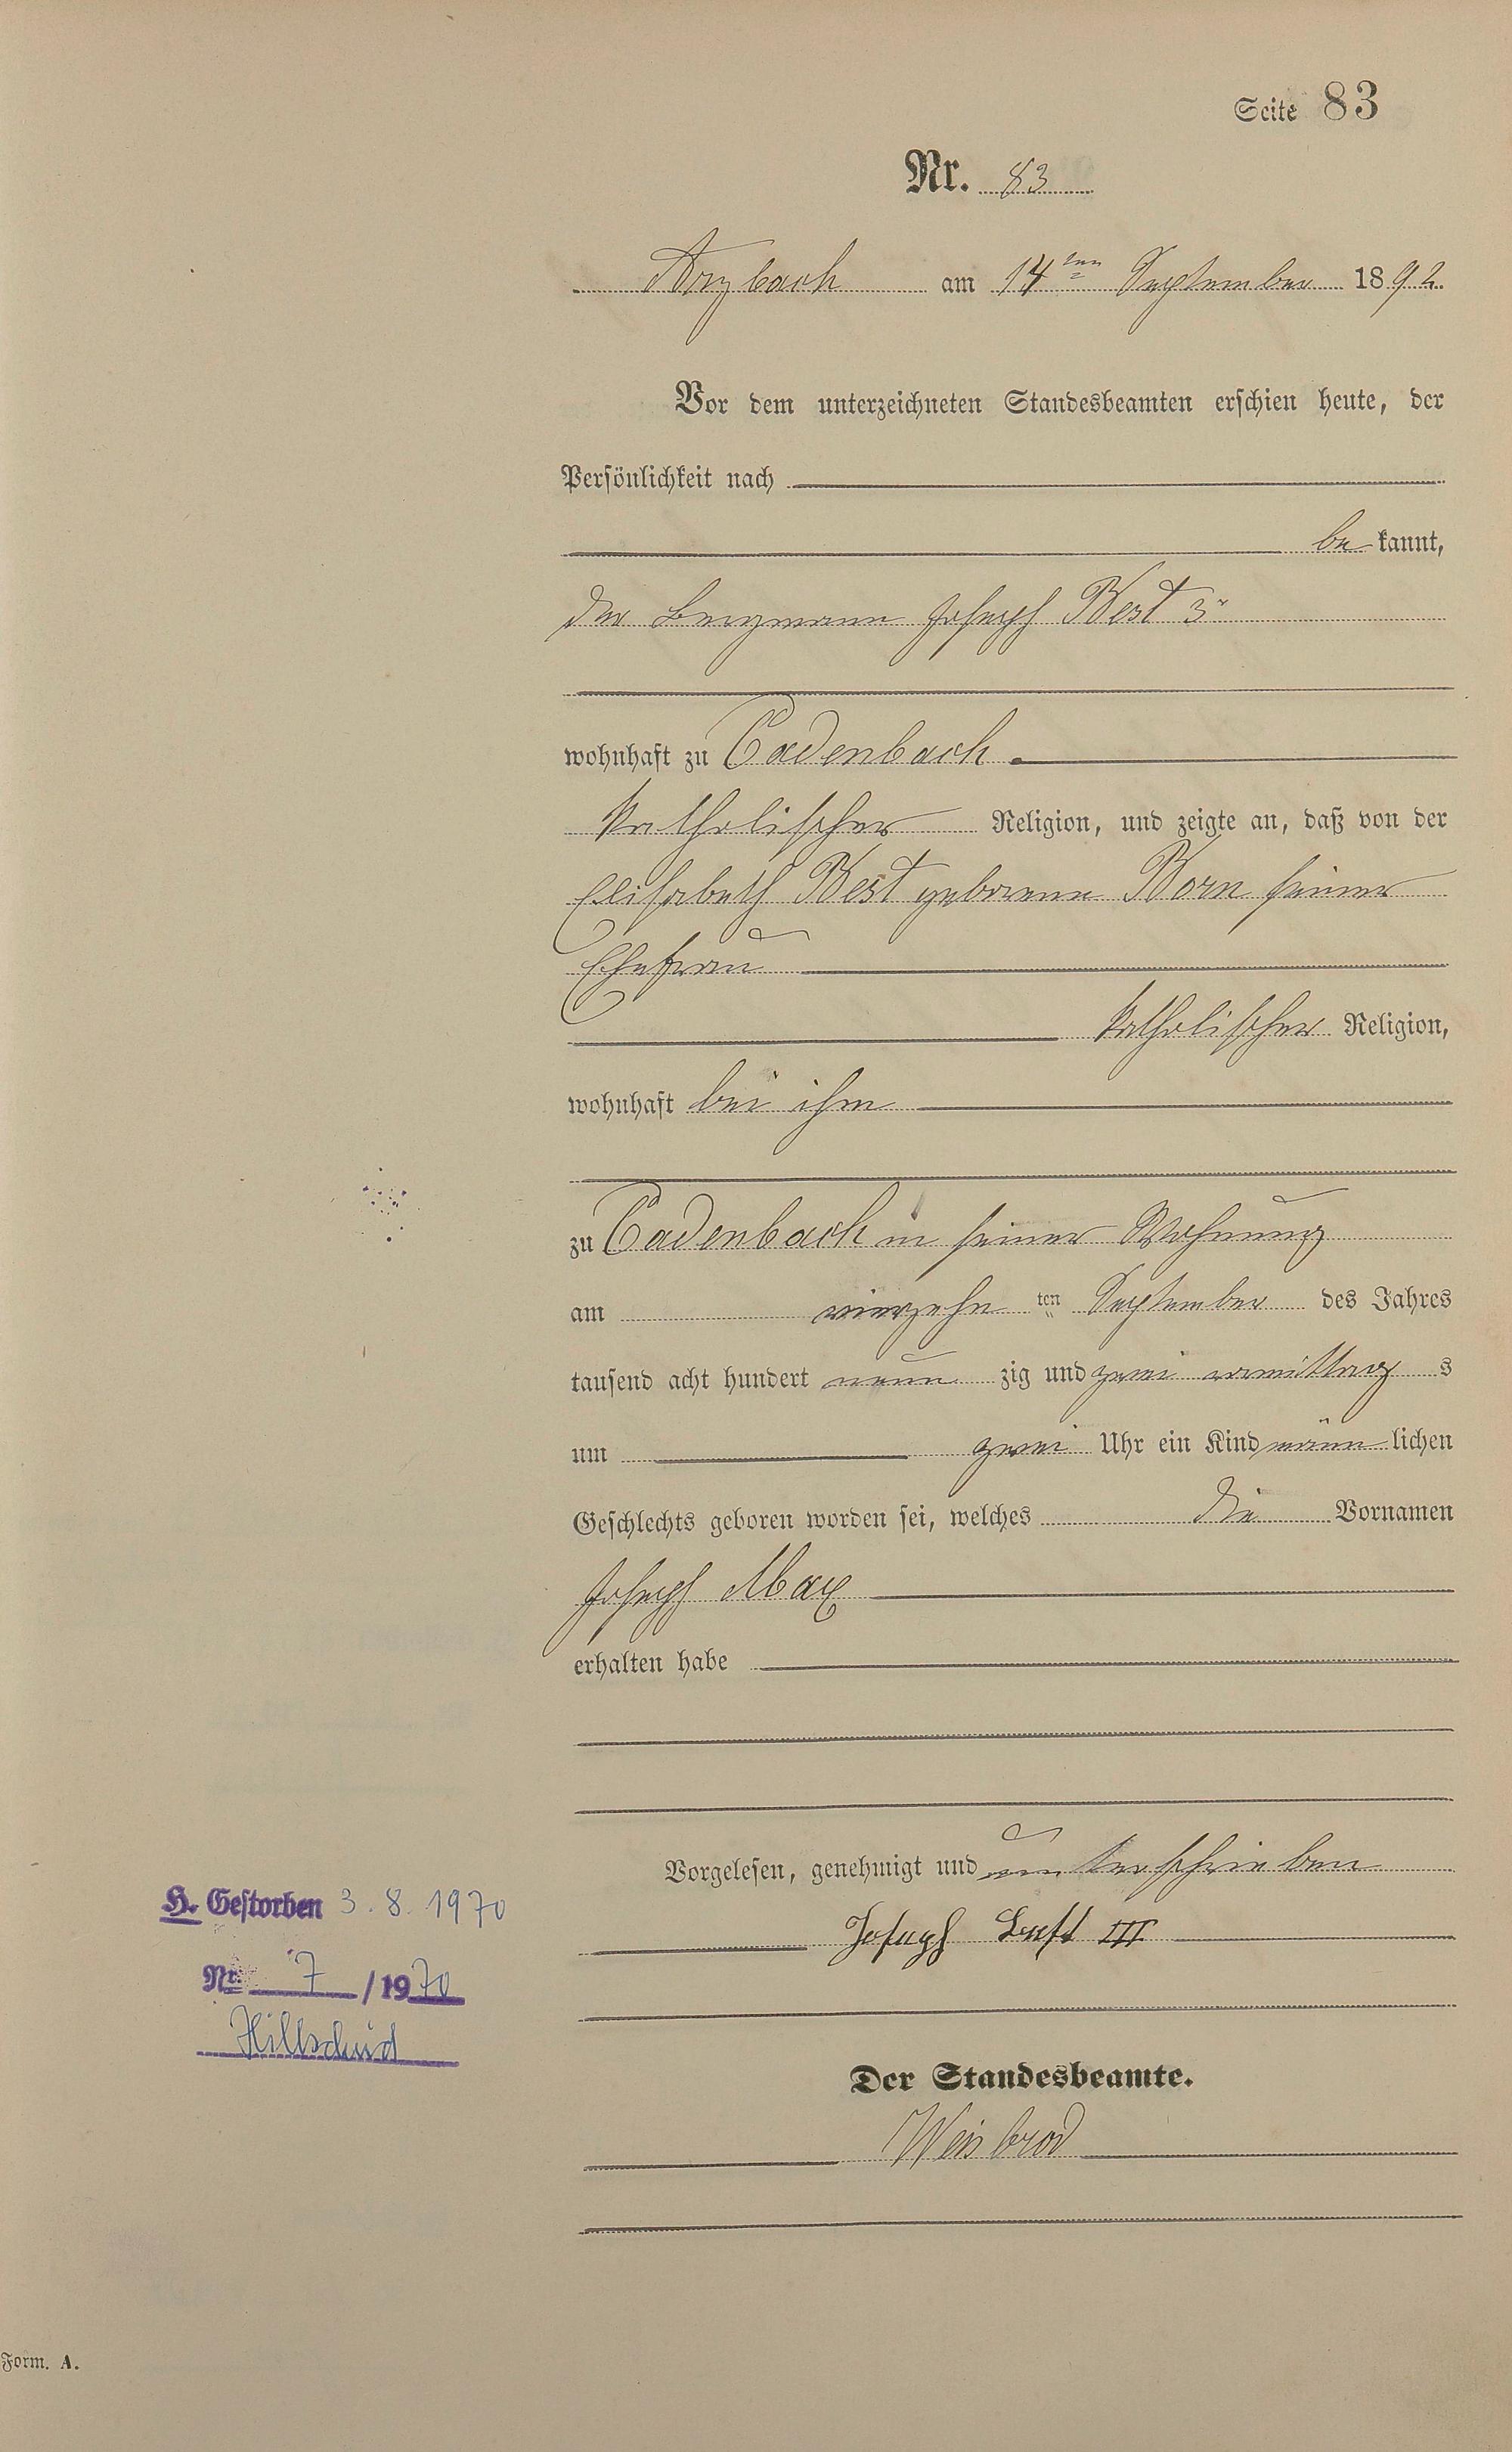 Seite 83
Nr. 83
Arzbach am 14ten September 1892.
Vor dem unterzeichneten Standesbeamten erschien heute, der
Persönlichkeit nach
be kannt,
der Bergmann Joseph Best 3r
wohnhaft zu Cadenbach
katholischer Religion, und zeigte an, daß von der
Elisabeth Best geborene Born seiner
Ehefrau
katholischer Religion,
wohnhaft bei ihm
zu Cadenbach in seiner Wohnung
am vierzehn ten September des Jahres
tausend acht hundert neun zig und zwei vormittag s
um zwei Uhr ein Kind männ lichen
Geschlechts geboren worden sei, welches die Vornamen
Joseph Max
erhalten habe
Vorgelesen, genehmigt und unterschrieben
Joseph Best III
Der Standesbeamte.
Weisbrod
H. Gestorben 3.8.1970
Nr. 7 /1970
Hillscheid
Form. A.